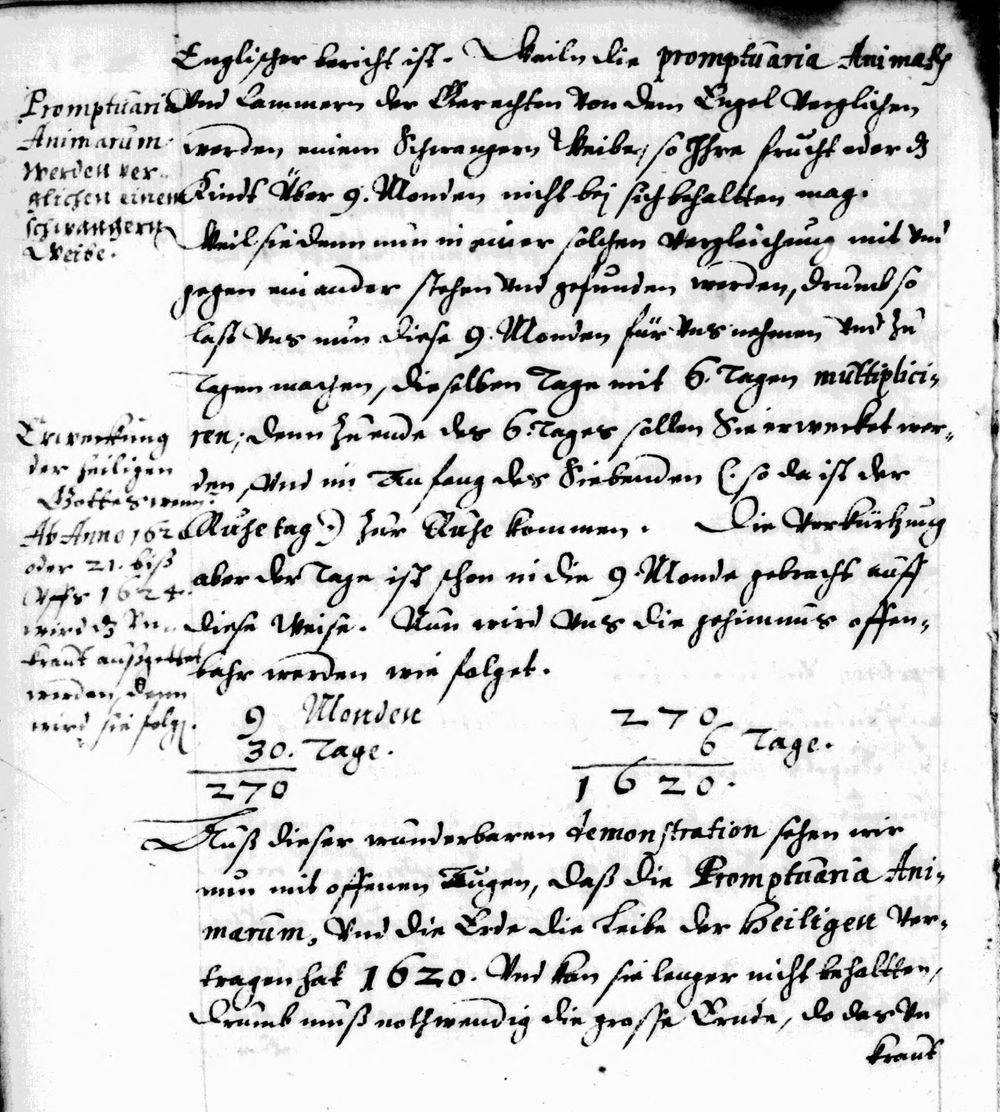 Englischer bericht ist. Weiln die promptuaria Animarum
Vnd Cammern der Gerechten von dem Engel verglichen
werden einem Schwangern Weibe, so Ihre frucht oder dz
Kindt Über 9. Monden nicht bej sich behaltten mag.
Weil sie denn nun in einer solchen vergleichung mit vnd
gegen einander stehen vnd gefunden werden, drumb so
last vns nun diese 9. Monden für vns nehmen vnd zu
Tagen machen, dieselben Tage mit 6. Tagen multiplici-
ren, denn zu ende des 6. Tages sollen Sie erwecket wer-
den, vnd im Anfang des Siebenden (: so da ist der
Ruhetag :) zur Ruhe kommen. Die verkürtzung
aber der Tage ist schon in die 9. Monde gebracht auff
diese Weise. Nun wird vns die geheimnus offen-
bahr werden wie folget.
Promptuaria
Animarum
werden ver-
glichen einem
schwangern
Weibe.
Erweckung
der heiligen
Gottes wenn?
Ab Anno 1620
oder 21. biß
Vffs 1624.
wird dz Vn-
kraut außgettet
werden, denn
wird sie folgen.
9 Monden
30. Tage.
270
270
6 Tage.
1620.
Auß dieser wunderbaren demonstration sehen wir
nun mit offenen Augen, daß die Promptuaria Ani-
marum, Vnd die Erde die Leibe der Heiligen ver-
tragen hat 1620. Vnd kan sie lenger nicht behaltten,
drumb muß nothwendig die grosse Ernde, do das Vn
kraut